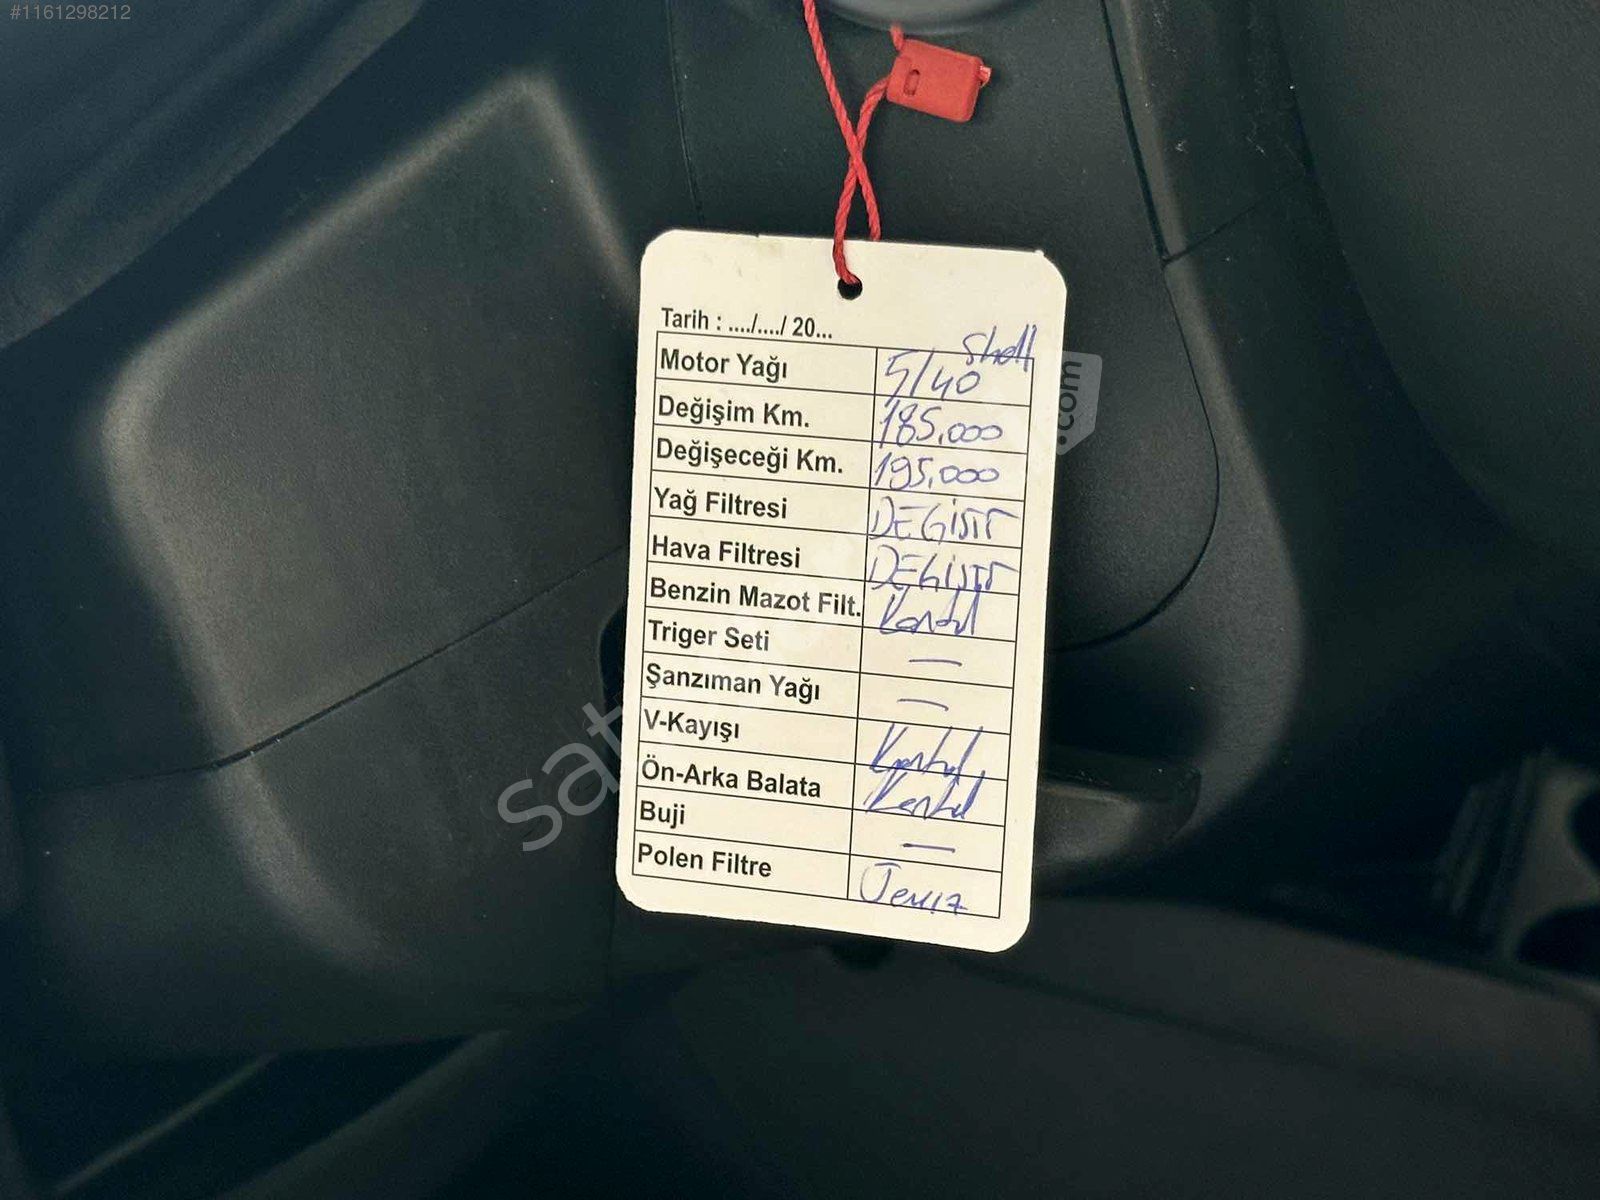 #1161298212
Tarih : ..../..../ 20...
Shell
Motor Yağı 5/40
Değişim Km. 185.000
Değişeceği Km. 195.000
Yağ Filtresi DEĞİŞTİ
Hava Filtresi DEĞİŞTİ
Benzin Mazot Filt. Kontrol
Triger Seti —
Şanzıman Yağı —
V-Kayışı Kontrol
Ön-Arka Balata Kontrol
Buji —
Polen Filtre Temiz
sat
.com